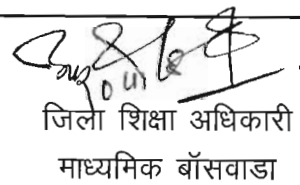 जिला शिक्षा अधिकारी
माध्यमिक बॉसवाडा